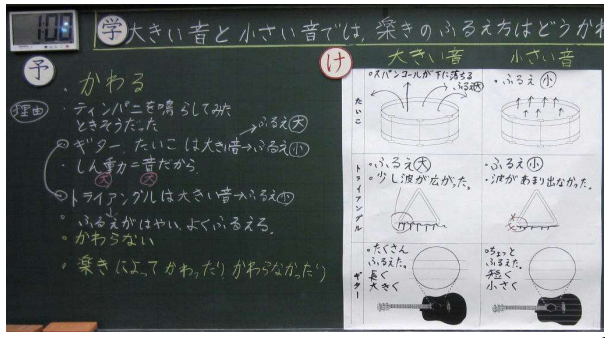 学 大きい音と小さい音では、楽きのふるえ方はどうかわ
予
・かわる
理由
・ティンパニを鳴らしてみた
ときそうだった
ふるえ大
ギター、たいこは大きい音→ふるえ小
・しん重力=音だから。
大 大
トライアングルは大きい音→ふるえ小
ふるえがはやい、よくふるえる。
・かわらない
・楽きによってかわったりかわらなかったり
け
大きい音 小さい音
たいこ
・スパンコールが下に落ちる
・ふるえ大
・ふるえ小
トライアングル
・ふるえ大
・少し波が広がった。
・ふるえ小
・波があまり出なかった。
ギター
・たくさん
ふるえた。
長く
大きく
・ちょっと
ふるえた。
短く
小さく